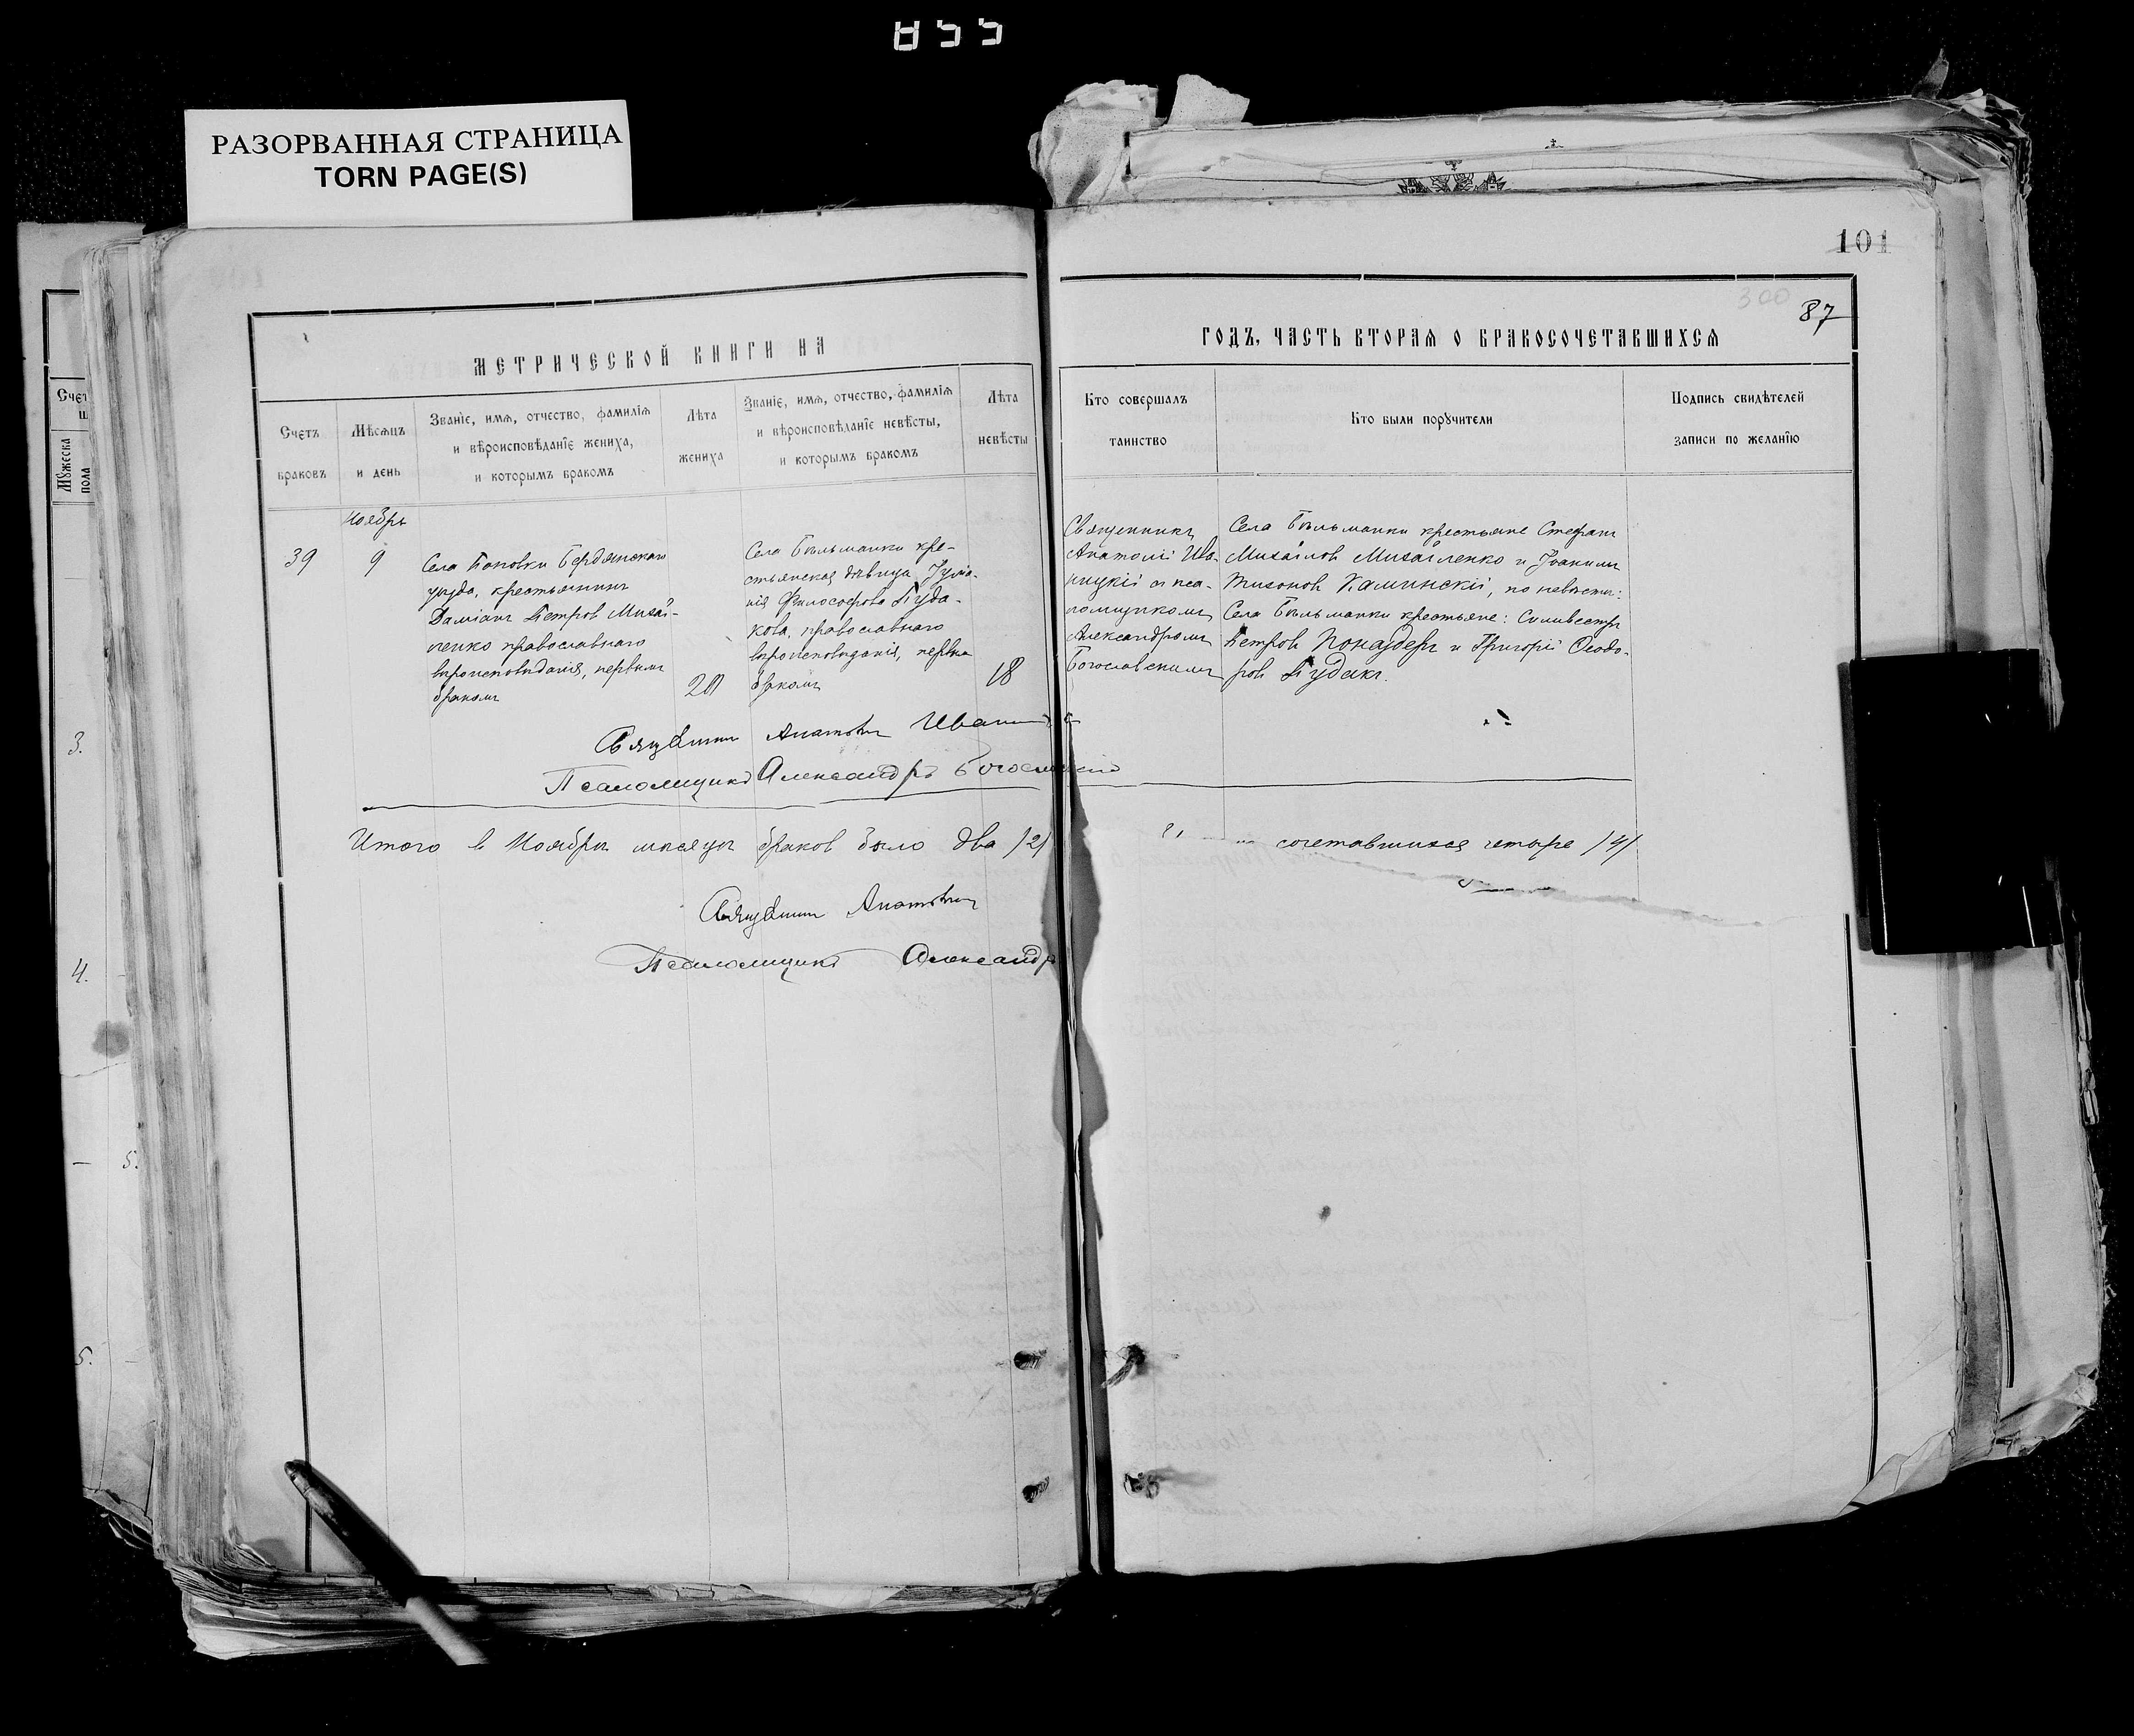 855
РАЗОРВАННАЯ СТРАНИЦА
TORN PAGE(S)
101
300
87
МЕТРИЧЕСКОЙ КНИГИ НА
ГОДЪ, ЧАСТЬ ВТОРАЯ О БРАКОСОЧЕТАВШИХСЯ
Счетъ
браковъ
Мѣсяцъ
и день
Званіе, имя, отчество, фамилія
и вѣроисповѣданіе жениха,
и которымъ бракомъ
Лѣта
жениха
Званіе, имя, отчество, фамилія
и вѣроисповѣданіе невѣсты,
и которымъ бракомъ
Лѣта
невѣсты
Кто совершалъ
таинство
Кто были поручители
Подпись свидѣтелей
записи по желанію
Мужеска
пола
Ноябрь
39
9
Села Поповки Бердянскаго
уѣзда, крестьянинъ
Даміанъ Петровъ Михай-
ленко православнаго
вѣроисповѣданія, первымъ
бракомъ
20
Села Бѣльманки кре-
стьянская дѣвица Іулiа-
нія Философова Пуда-
кова, православнаго
вѣроисповѣданія, первы
бракомъ
18
Священникъ
Анатолій Ива-
ницкій съ пса-
ломщикомъ
Александромъ
Богославскимъ
Села Бѣльманки крестьяне Стефанъ
Михайловъ Михайленко и Іоакимъ
Тихоновъ Каминскій, по невѣстѣ:
Села Бѣльманки крестьяне: Силивестръ
Петровъ Понадерь и Григорій Ѳеодо-
ровъ Пудакъ.
Священникъ Анатолій Иваницкій
Псаломщикъ Александръ Богославскій
Итого въ Ноябрѣ мѣсяцѣ браковъ было два /2/
сочетавшихся четыре /4/
Священникъ Анатолій
Псаломщикъ Александръ
3.
4.
5.
5.